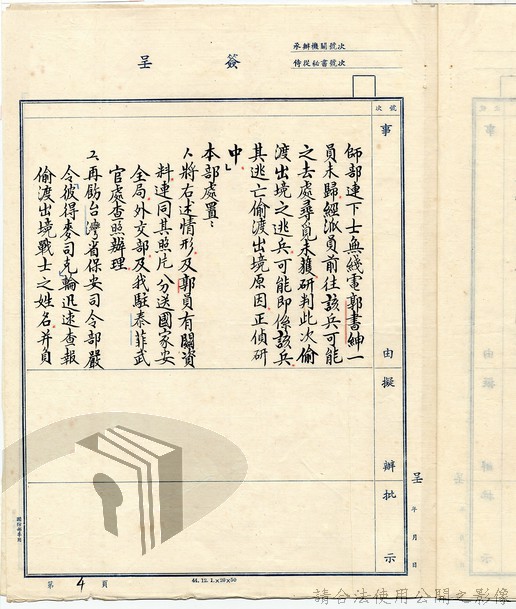 承辦機關號次
侍從秘書號次
簽呈
號次
事由擬辦批示
師部連下士無綫電郭書紳一
員未歸經派員前往該兵可能
之去處尋覓未獲研判此次偷
渡出境之逃兵可能即係該兵
其逃亡偷渡出境原因正偵研
中」
本部處置：
1、將右述情形及郭員有關資
料連同其照片分送國家安
全局外交部及我駐泰菲武
官處查照辦理
2、再飭台灣省保安司令部嚴
令「彼得麥司克」輪迅速查報
偷渡出境戰士之姓名并負
呈
年月日
第4頁
44. 12. 1.×20×50
請合法使用公開之影像